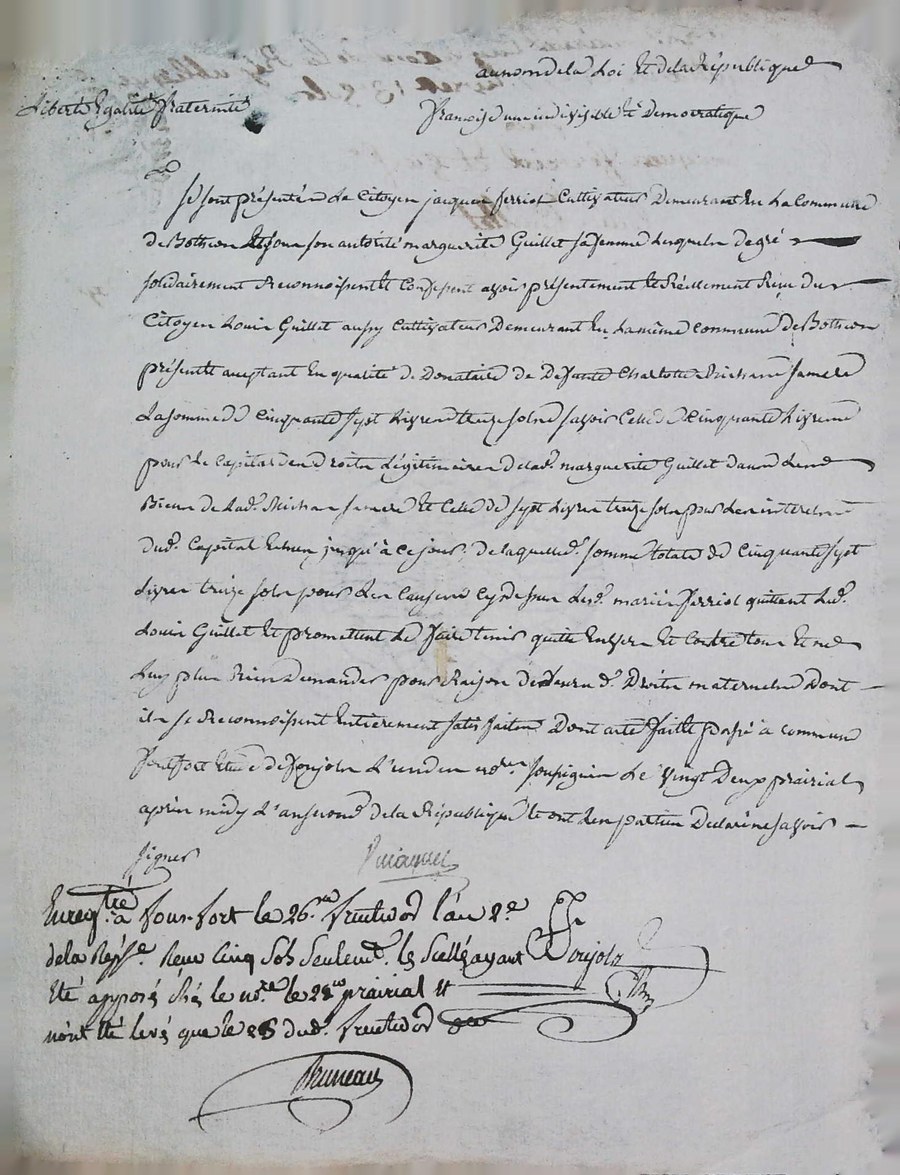 au nom de la Loi Et de la République
Liberté Egalité fraternité
françoise une indivisible et Democratique
Se sont présentés Le Citoyen jacques ferriol Cultivateur Demeurant En La Commune
de Botheon Et sous son autorité marguerite Guillet sa femme Lesquels de gré
solidairement Reconnoissent et Confessent avoir présentement Et Réellement Reçu du
Citoyen Louis Guillet aussy Cultivateur Demeurant En La même Commune de Botheon
présent et acceptant En qualité de Donataire de Defunte Charlotte sa mere
La somme de Cinquante sept Livres treize sols savoir Celle de Cinquante Livres
pour Le Capital des droits Légitimaires de lad. marguerite Guillet dans Les
Biens de Lad. sa mere Et Celle de sept Livres treize sols pour Les interets
dud. Capital Echus jusqu'à ce jour, de laquelle d. somme totale de Cinquante sept
Livres treize sols pour Les Causes Cy dessus Lesd. mariés ferriol quittent Led.
Louis Guillet Et promettent Le faire tenir quitte Envers Et Contre tous Et ne
Luy plus Rien Demander pour Raison de d. Droits maternels Dont
ils se Reconnoissent Entièrement satisfaits Dont acte fait Et passé à Commune
fonfort Etude de Poujols L'un des nores. soussignés Le Vingt Deux prairial
après midy L'an second de la République Et ont Les parties Déclaré ne savoir
signer
Enregtré à fons-fort le 26.me fructidor l'an 2.e
de la Repse. Reçu Cinq Sols Seulemt. les Scellés ayant Poujols
Eté apposés chés le nore. le 28 prairial Et
n'ont Eté levé que le 25 dud. fructidor
Bruneau